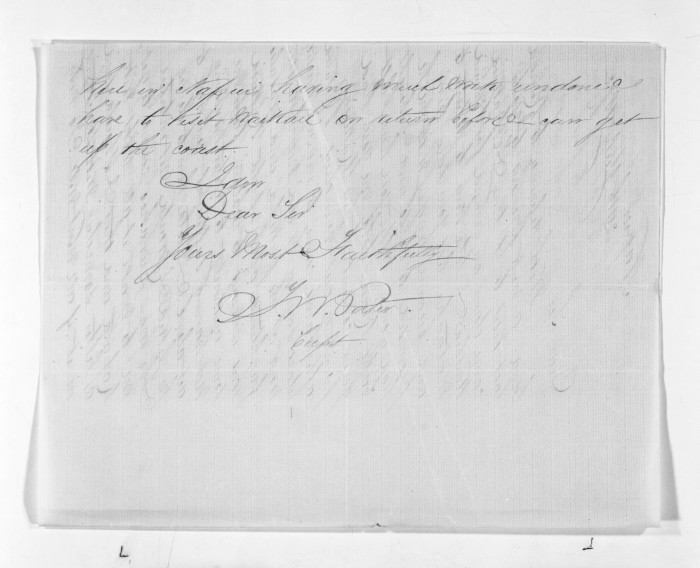 here in Napier, having much work undone I
have to visit on return before I can get
up the coast
I am
Dear Sir
Yours Most Faithfully
T. W. Porter
Capt